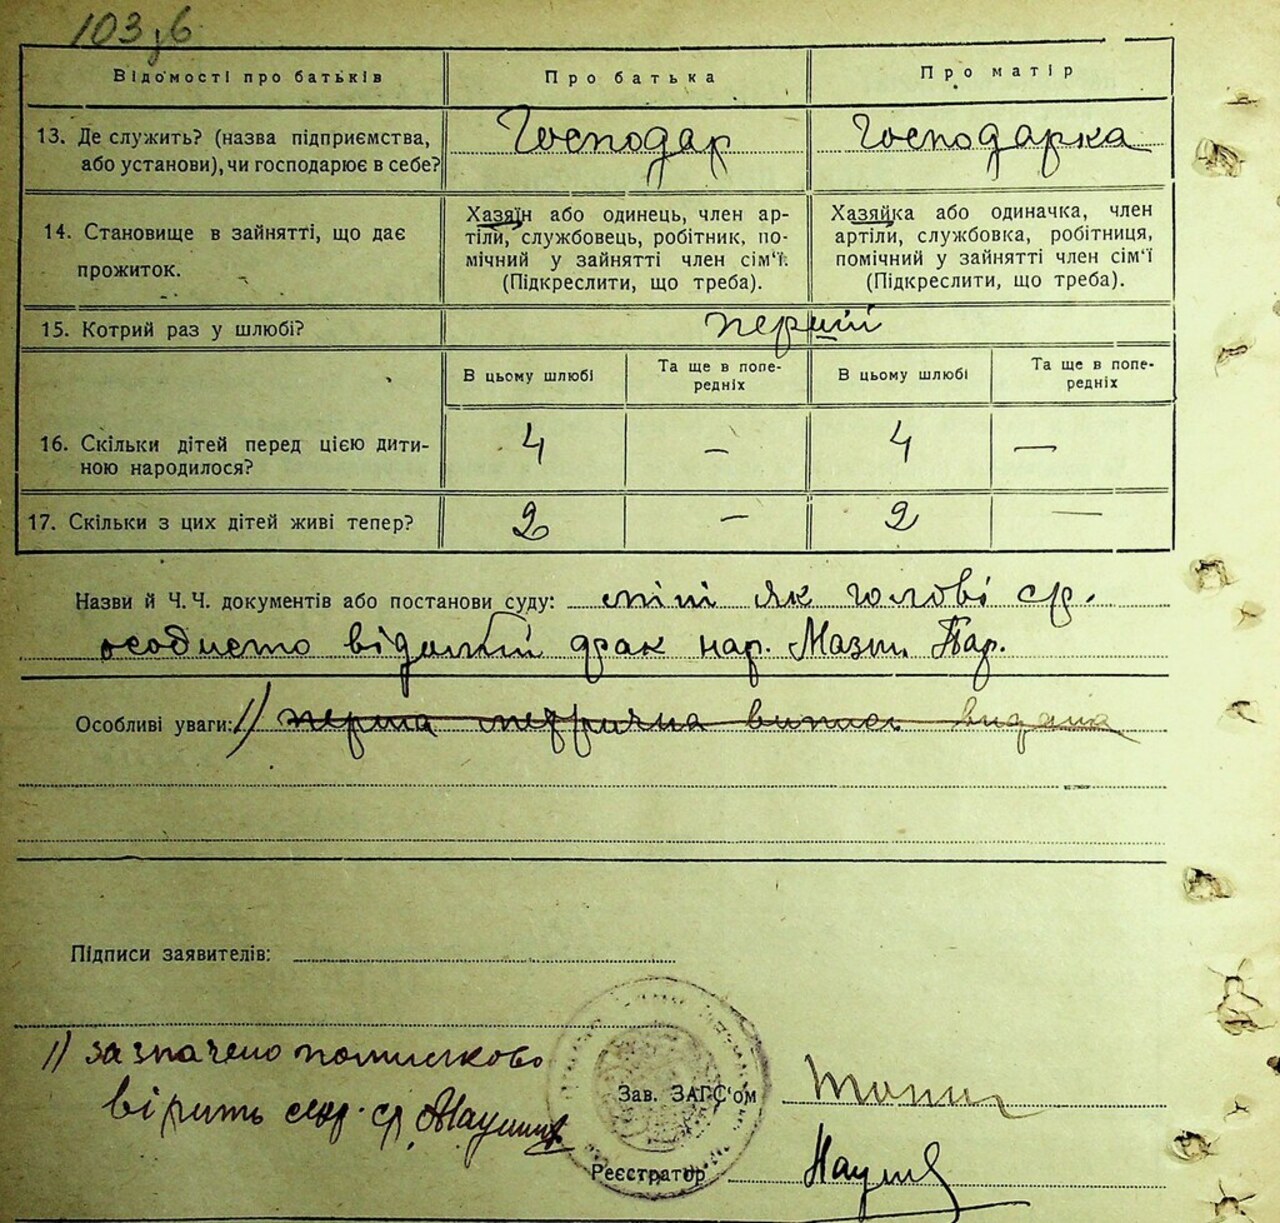 103 зв
Відомості про батьків
Про батька
Про матір
13. Де служить? (назва підприємства, або установи), чи господарює в себе?
Господар
Господарка
14. Становище в зайнятті, що дає прожиток.
Хазяїн або одинець, член ар-
тіли, службовець, робітник, по-
мічний у зайнятті член сім'ї.
(Підкреслити, що треба).
Хазяйка або одиначка, член
артіли, службовка, робітниця,
помічний у зайнятті член сім'ї
(Підкреслити, що треба).
15. Котрий раз у шлюбі?
перший
В цьому шлюбі
Та ще в попе-
редніх
В цьому шлюбі
Та ще в попе-
редніх
16. Скільки дітей перед цією дити-
ною народилося?
4 — 4 —
17. Скільки з цих дітей живі тепер?
2 — 2 —
Назви й Ч.Ч. документів або постанови суду: мині як голові ср.
особисто відомий нар.
Особливі уваги: 1) перша випись видана
Підписи заявителів:
1) зазначено помилково
вірить секр. ср
Зав. ЗАГС'ом
Реєстратор